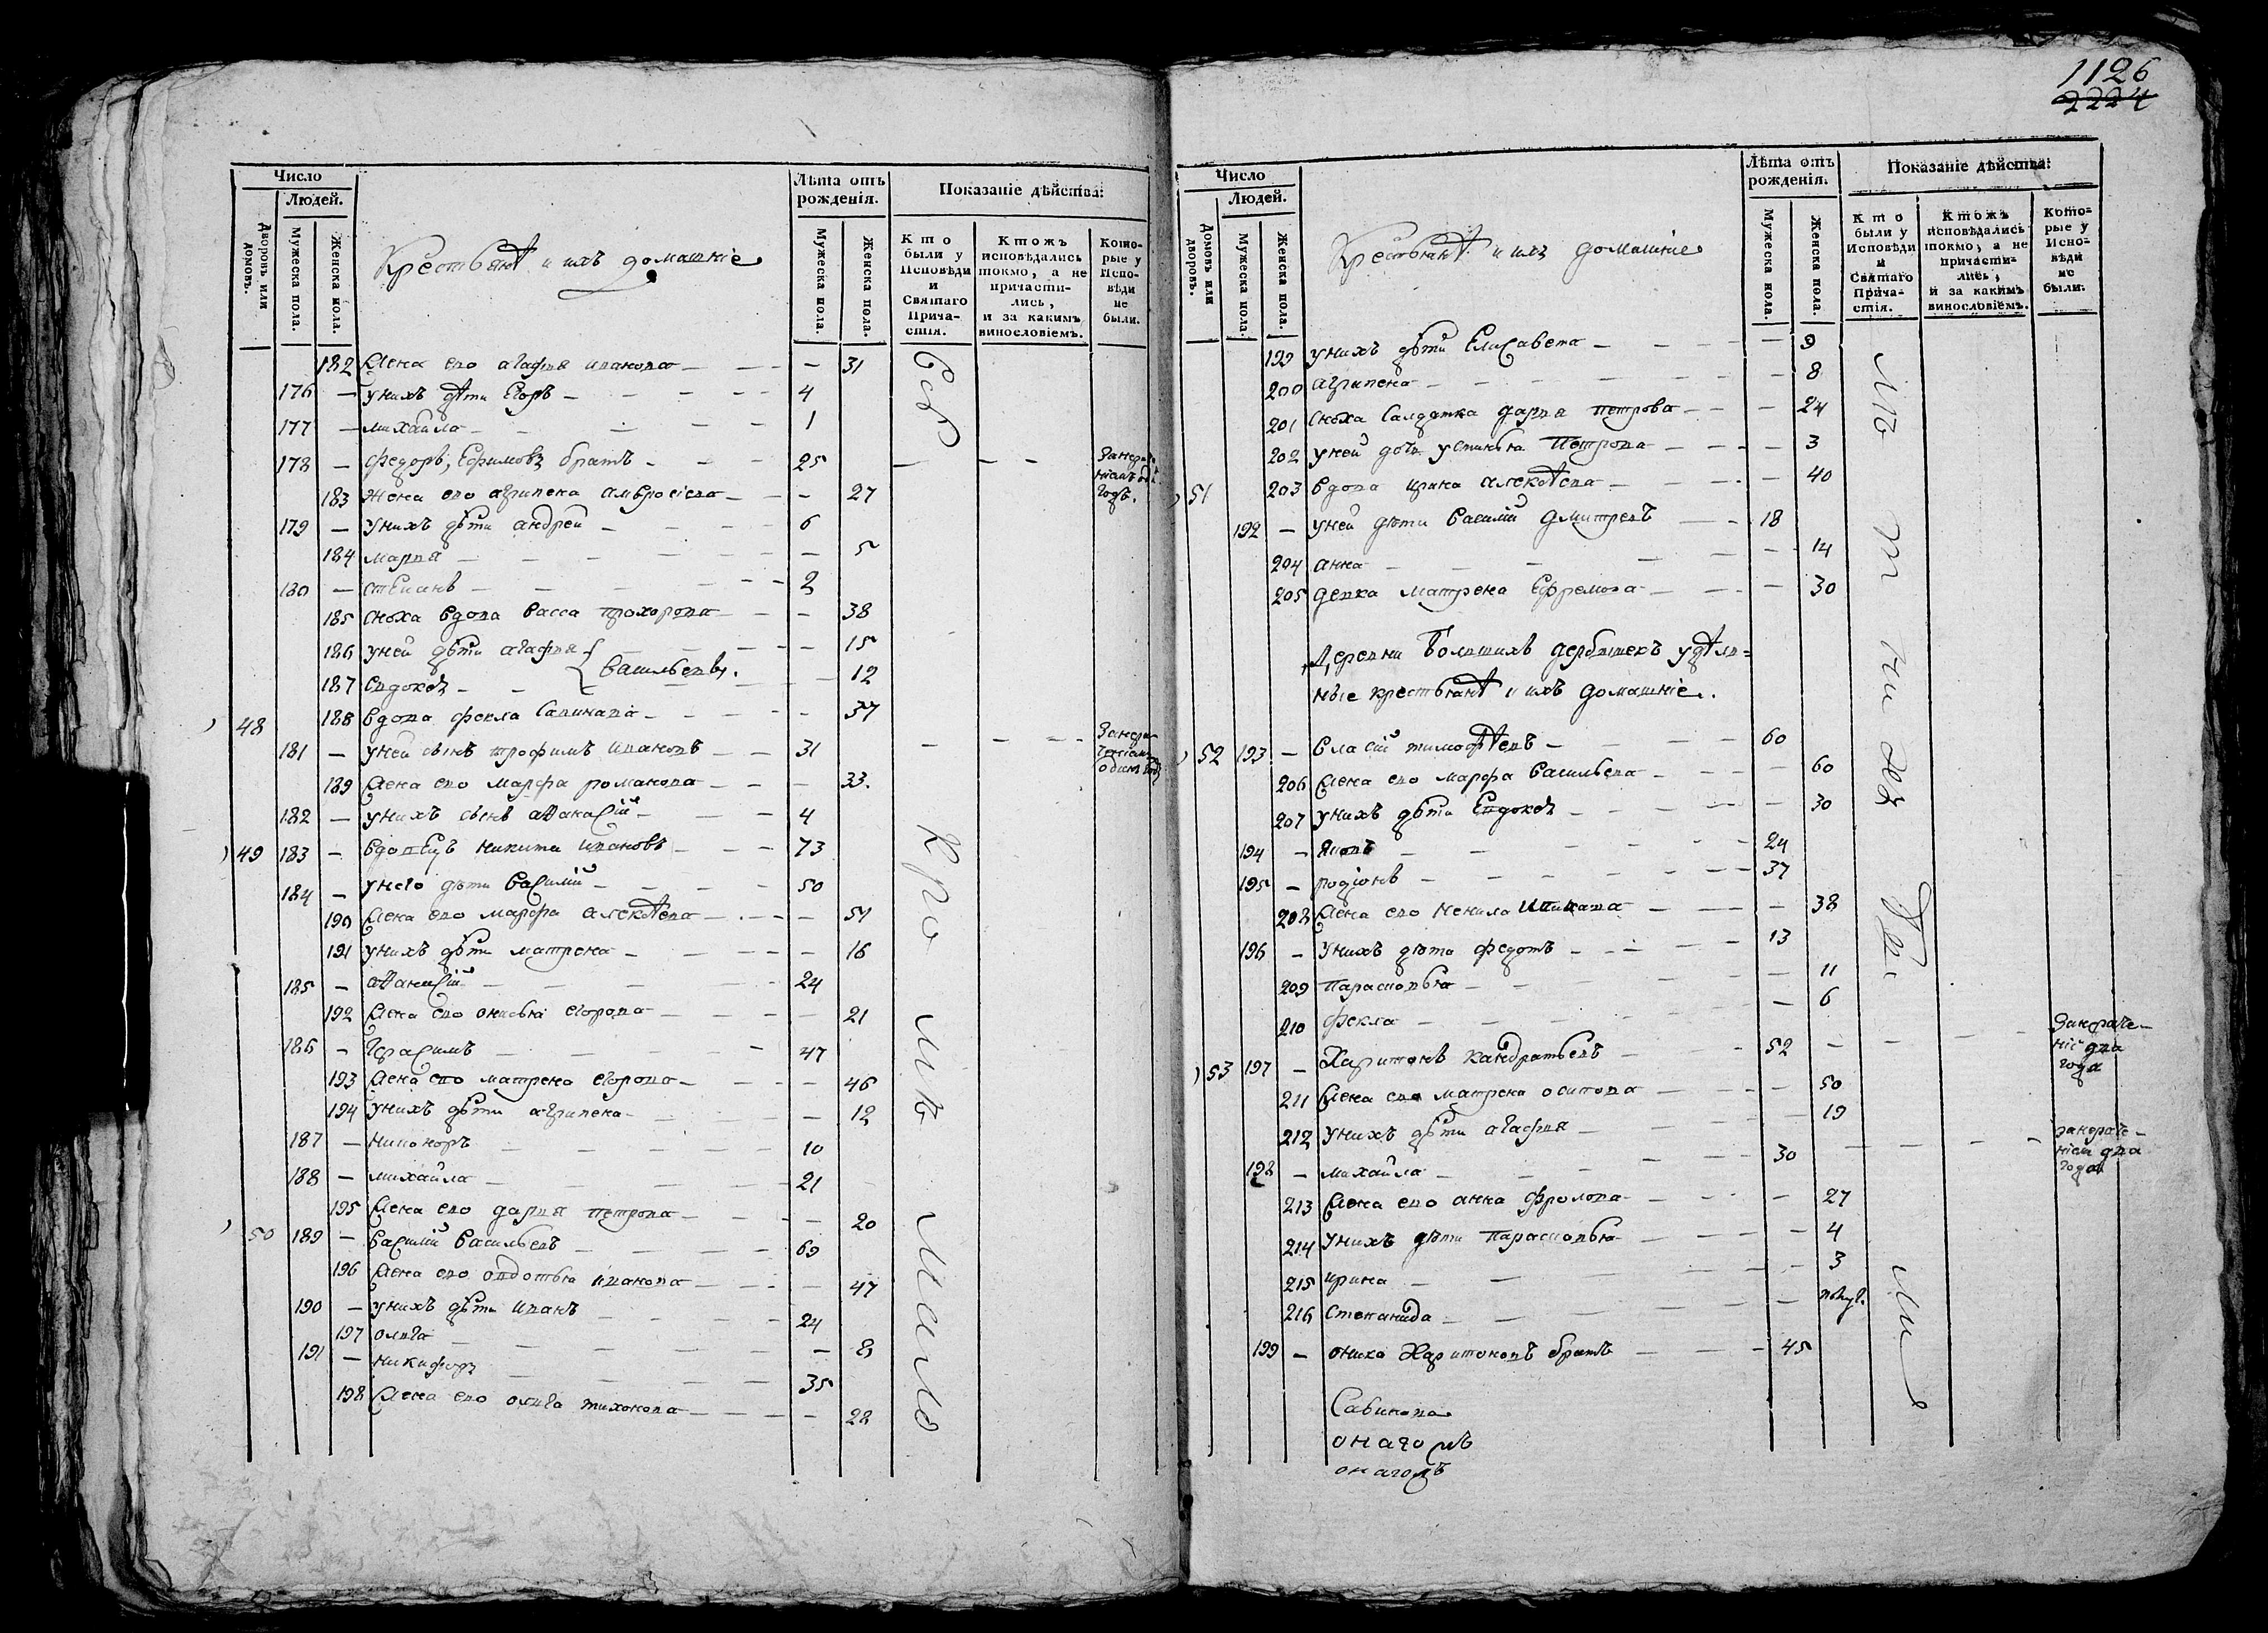 1126
2224
Число
Людей.
Дворовъ или домовъ.
Мужеска пола.
Женска пола.
Крестьянѣ и ихъ домашніе
Лѣта отъ рожденія.
Мужеска пола.
Женска пола.
Показаніе дѣйства:
Кто были у Исповѣди и Святаго Причастія.
Ктожъ исповѣдались токмо, а не причастились, и за какимъ винословіемъ.
Которые у Исповѣди не были.
182 Жена его агафия иванова — 31
176 — у нихъ дѣти Егоръ — 4
177 — михайла — 1
178 — федоръ, Ефимовъ братъ — 25
183 жена его агрипена амвросіева — 27
179 — у нихъ дѣти андрей — 6
184 мария — 5
180 — степанъ — 2
185 сноха вдова васса прохорова — 38
186 у ней дѣти агафия — 15
васильевы.
187 евдокея — 12
48 188 вдова фекла савинава — 37
181 — у ней сынъ трофимъ ивановъ — 31
189 Жена его марфа романова — 33.
182 — у нихъ сынъ аѳанасій — 4
49 183 — вдовецъ никита ивановъ — 73
184 — у него дѣти василій — 50
190 Жена его марфа алексѣева — 51
191 у нихъ дѣти матрена — 16
185 — аѳанасій — 24
192 Жена его онисья егорова — 21
186 — герасимъ — 47
193 Жена его матрена егорова — 46
194 у нихъ дѣти агрипена — 12
187 — никоноръ — 10
188 — михайла — 21
195 Жена его дария петрова — 20
50 189 — василій васильевъ — 69
196 Жена его овдотья иванова — 47
190 — у нихъ дѣти иванъ — 24
197 олга — 8
191 — никифоръ — 35
198 Жена его олга тихонова — 28
Всѣ
кромѣ
мало
Число
Людей.
Домовъ или дворовъ.
Мужеска пола.
Женска пола.
Крестьянѣ и ихъ домашніе
Лѣта отъ рожденія.
Мужеска пола.
Женска пола.
Показаніе дѣйства:
Кто были у Исповѣди и Святаго Причастія.
Ктожъ исповѣдались токмо, а не причастились, и за какимъ винословіемъ.
Которые у Исповѣди не были.
199 у нихъ дѣти Елисавета — 9
200 агрипена — 8
201 сноха салдатка дария петрова — 24
202 у ней дочь устинья петрова — 3
51 203 вдова ирина алексѣева — 40
192 — у ней дѣти василій дмитревъ — 18
204 анна — 14
205 девка матрена Ефремова — 30
Деревни Болшихъ дербышекъ удѣл=
ные крестьянѣ и ихъ домашніе.
52 193 — власій тимофѣевъ — 60
206 Жена его марфа васильева — 60
207 у нихъ дѣти Евдокея — 30
194 — яковъ — 24
195 — родіонъ — 37
208 Жена его ненила — 38
196 — у нихъ дѣти федотъ — 13
209 парасковья — 11
210 фекла — 6
53 197 — Харитонъ кандратьевъ — 52
211 Жена его матрена осипова — 50
212 у нихъ дѣти агафия — 19
198 — михайла — 30
213 Жена его анна фролова — 27
214 у нихъ дѣти парасковья — 4
215 ирина — 3
216 степанида — полуг.
199 — оника Харитоновъ братъ — 45
занераче-
ніе два
года
занераче-
ніем два
года
Савинова